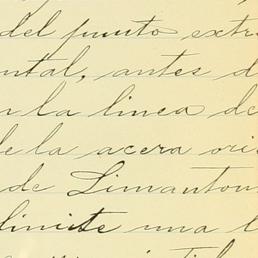 del punto extr
ntal, antes d
n la linea de
e la acera ori
de Limantou
limite una l